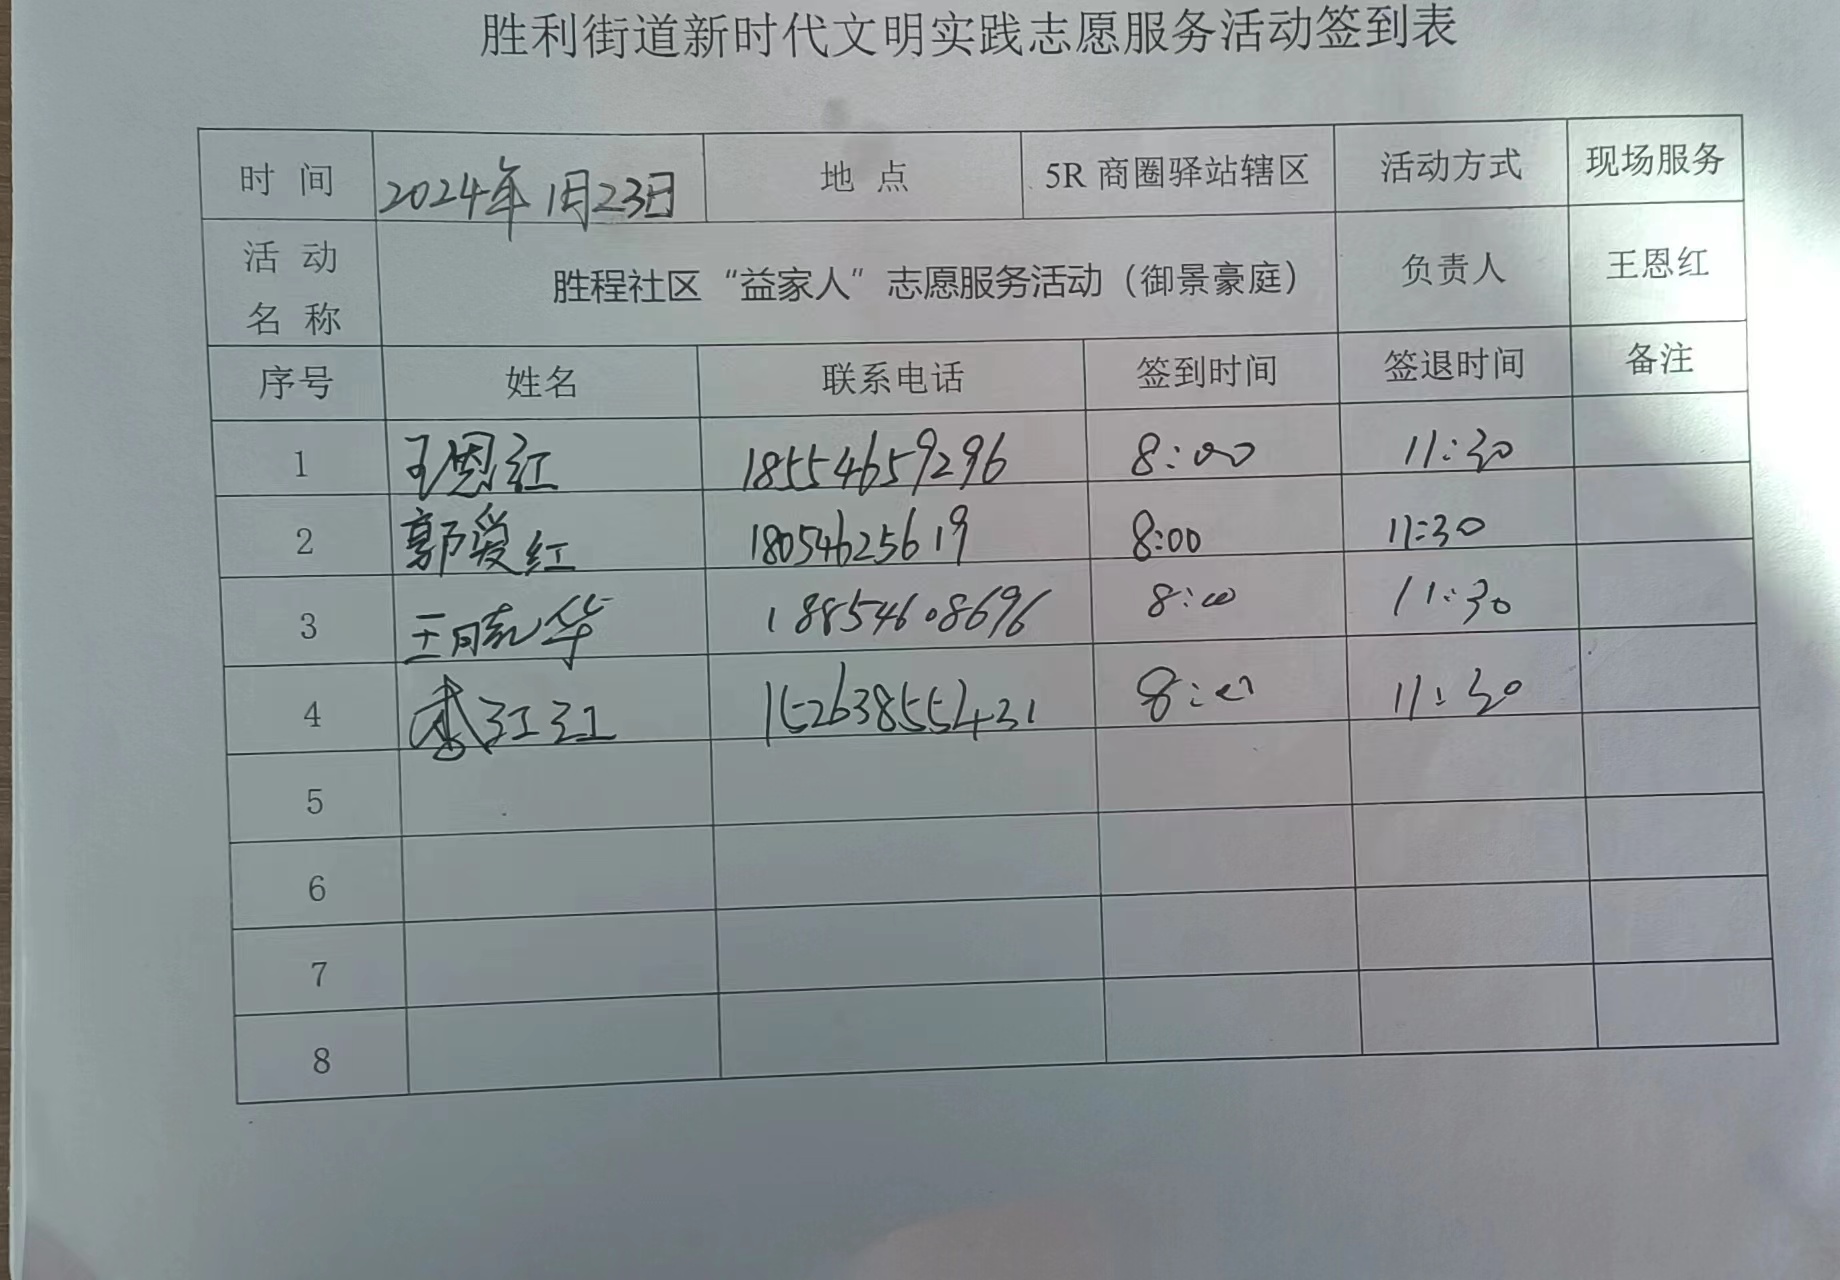 胜利街道新时代文明实践志愿服务活动签到表
时 间 2024年1月23日 地 点 5R 商圈驿站辖区 活动方式 现场服务
活 动 名 称 胜程社区“益家人”志愿服务活动（御景豪庭） 负责人 王恩红
序号 姓名 联系电话 签到时间 签退时间 备注
1 王恩红 18554659296 8:00 11:30
2 郭爱红 18054625619 8:00 11:30
3 王晓华 18854608696 8:00 11:30
4 红红 15263855431 8:00 11:30
5
6
7
8